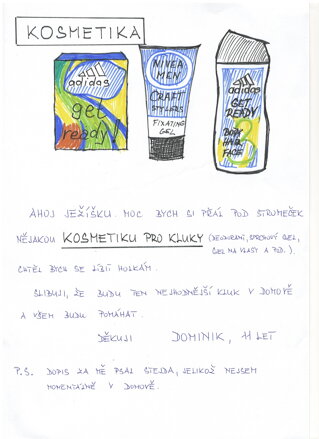 KOSMETIKA
adidas
get
ready!
NIVEA
MEN
CRAFT
STYLERS
FIXATING
GEL
adidas
GET
READY
BODY
HAIR
FACE
3
AHOJ JEŽÍŠKU. MOC BYCH SI PŘÁL POD STROMEČEK
NĚJAKOU KOSMETIKU PRO KLUKY (DEODORANT, SPRCHOVÝ GEL,
GEL NA VLASY A POD.).
CHTĚL BYCH SE LÍBIT HOLKÁM.
SLIBUJI, ŽE BUDU TEN NEJHODNĚJŠÍ KLUK V DOMOVĚ
A VŠEM BUDU POMÁHAT.
DĚKUJI DOMINIK, 11 LET
P.S. DOPIS ZA MĚ PSAL STEJDA, JELIKOŽ NEJSEM
MOMENTÁLNĚ V DOMOVĚ.